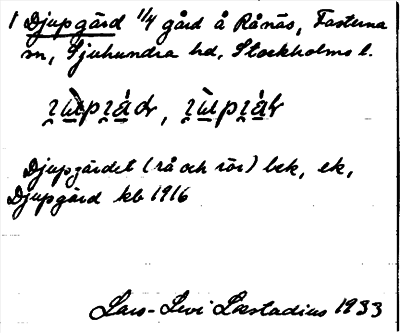 1 Djupgärd 1/4 gård å Rånäs, Fasterna
sn, Sjuhundra hd, Stockholms l.
Djupgärdet (rå och rör) bek, ek,
Djupgärd kb 1916
Lars-Levi Læstadius 1933